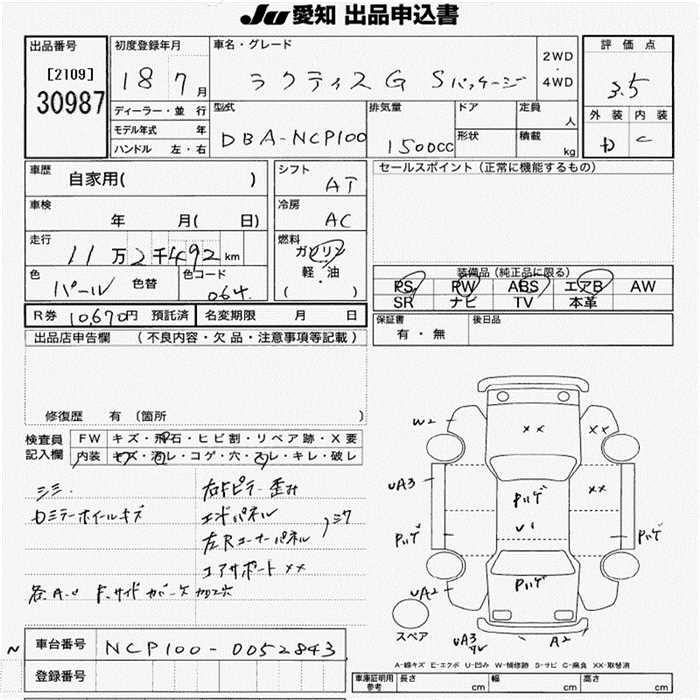 JU 愛知 出品申込書
出品番号
[2109]
30987
初度登録年月
18 7 月
ディーラー・並 行
モデル年式 年
ハンドル 左・右
車名・グレード
ラクティス G Sパッケージ
2WD
・
4WD
型式
DBA-NCP100
排気量
1500cc
ドア
形状
定員
人
積載
kg
評 価 点
3.5
外 装 内 装
D C
車歴
自家用( )
車検
年 月( 日)
走行
11万2千492 km
色
パール 色替
色コード
064
シフト
AT
冷房
AC
燃料
ガソリン
・
軽・油
( )
セールスポイント (正常に機能するもの)
装備品 (純正品に限る)
PS PW ABS エアB AW
SR ナビ TV 本革
R券 10,670円 預託済 名変期限 月 日
保証書
有・無
後日品
出品店申告欄 (不良内容・欠品・注意事項等記載)
修復歴 有 (箇所 )
検査員
記入欄
FW キズ・飛石・ヒビ割・リペア跡・X要
内装 キズ・汚レ・コゲ・穴・スレ・キレ・破レ
エンドパネル
左Rコーナーパネル
コアサポート ××
W2
××
××
UA3
××
パルゲ
パルゲ
パルゲ
パルゲ
UA2
UA2
UA3
A2
スペア
A-線キズ E-エクボ U-凹み W-補修跡 S-サビ C-腐食 XX-取替済
車台番号 NCP100-0052843
登録番号
車庫証明用
参考
長さ cm 幅 cm 高さ cm